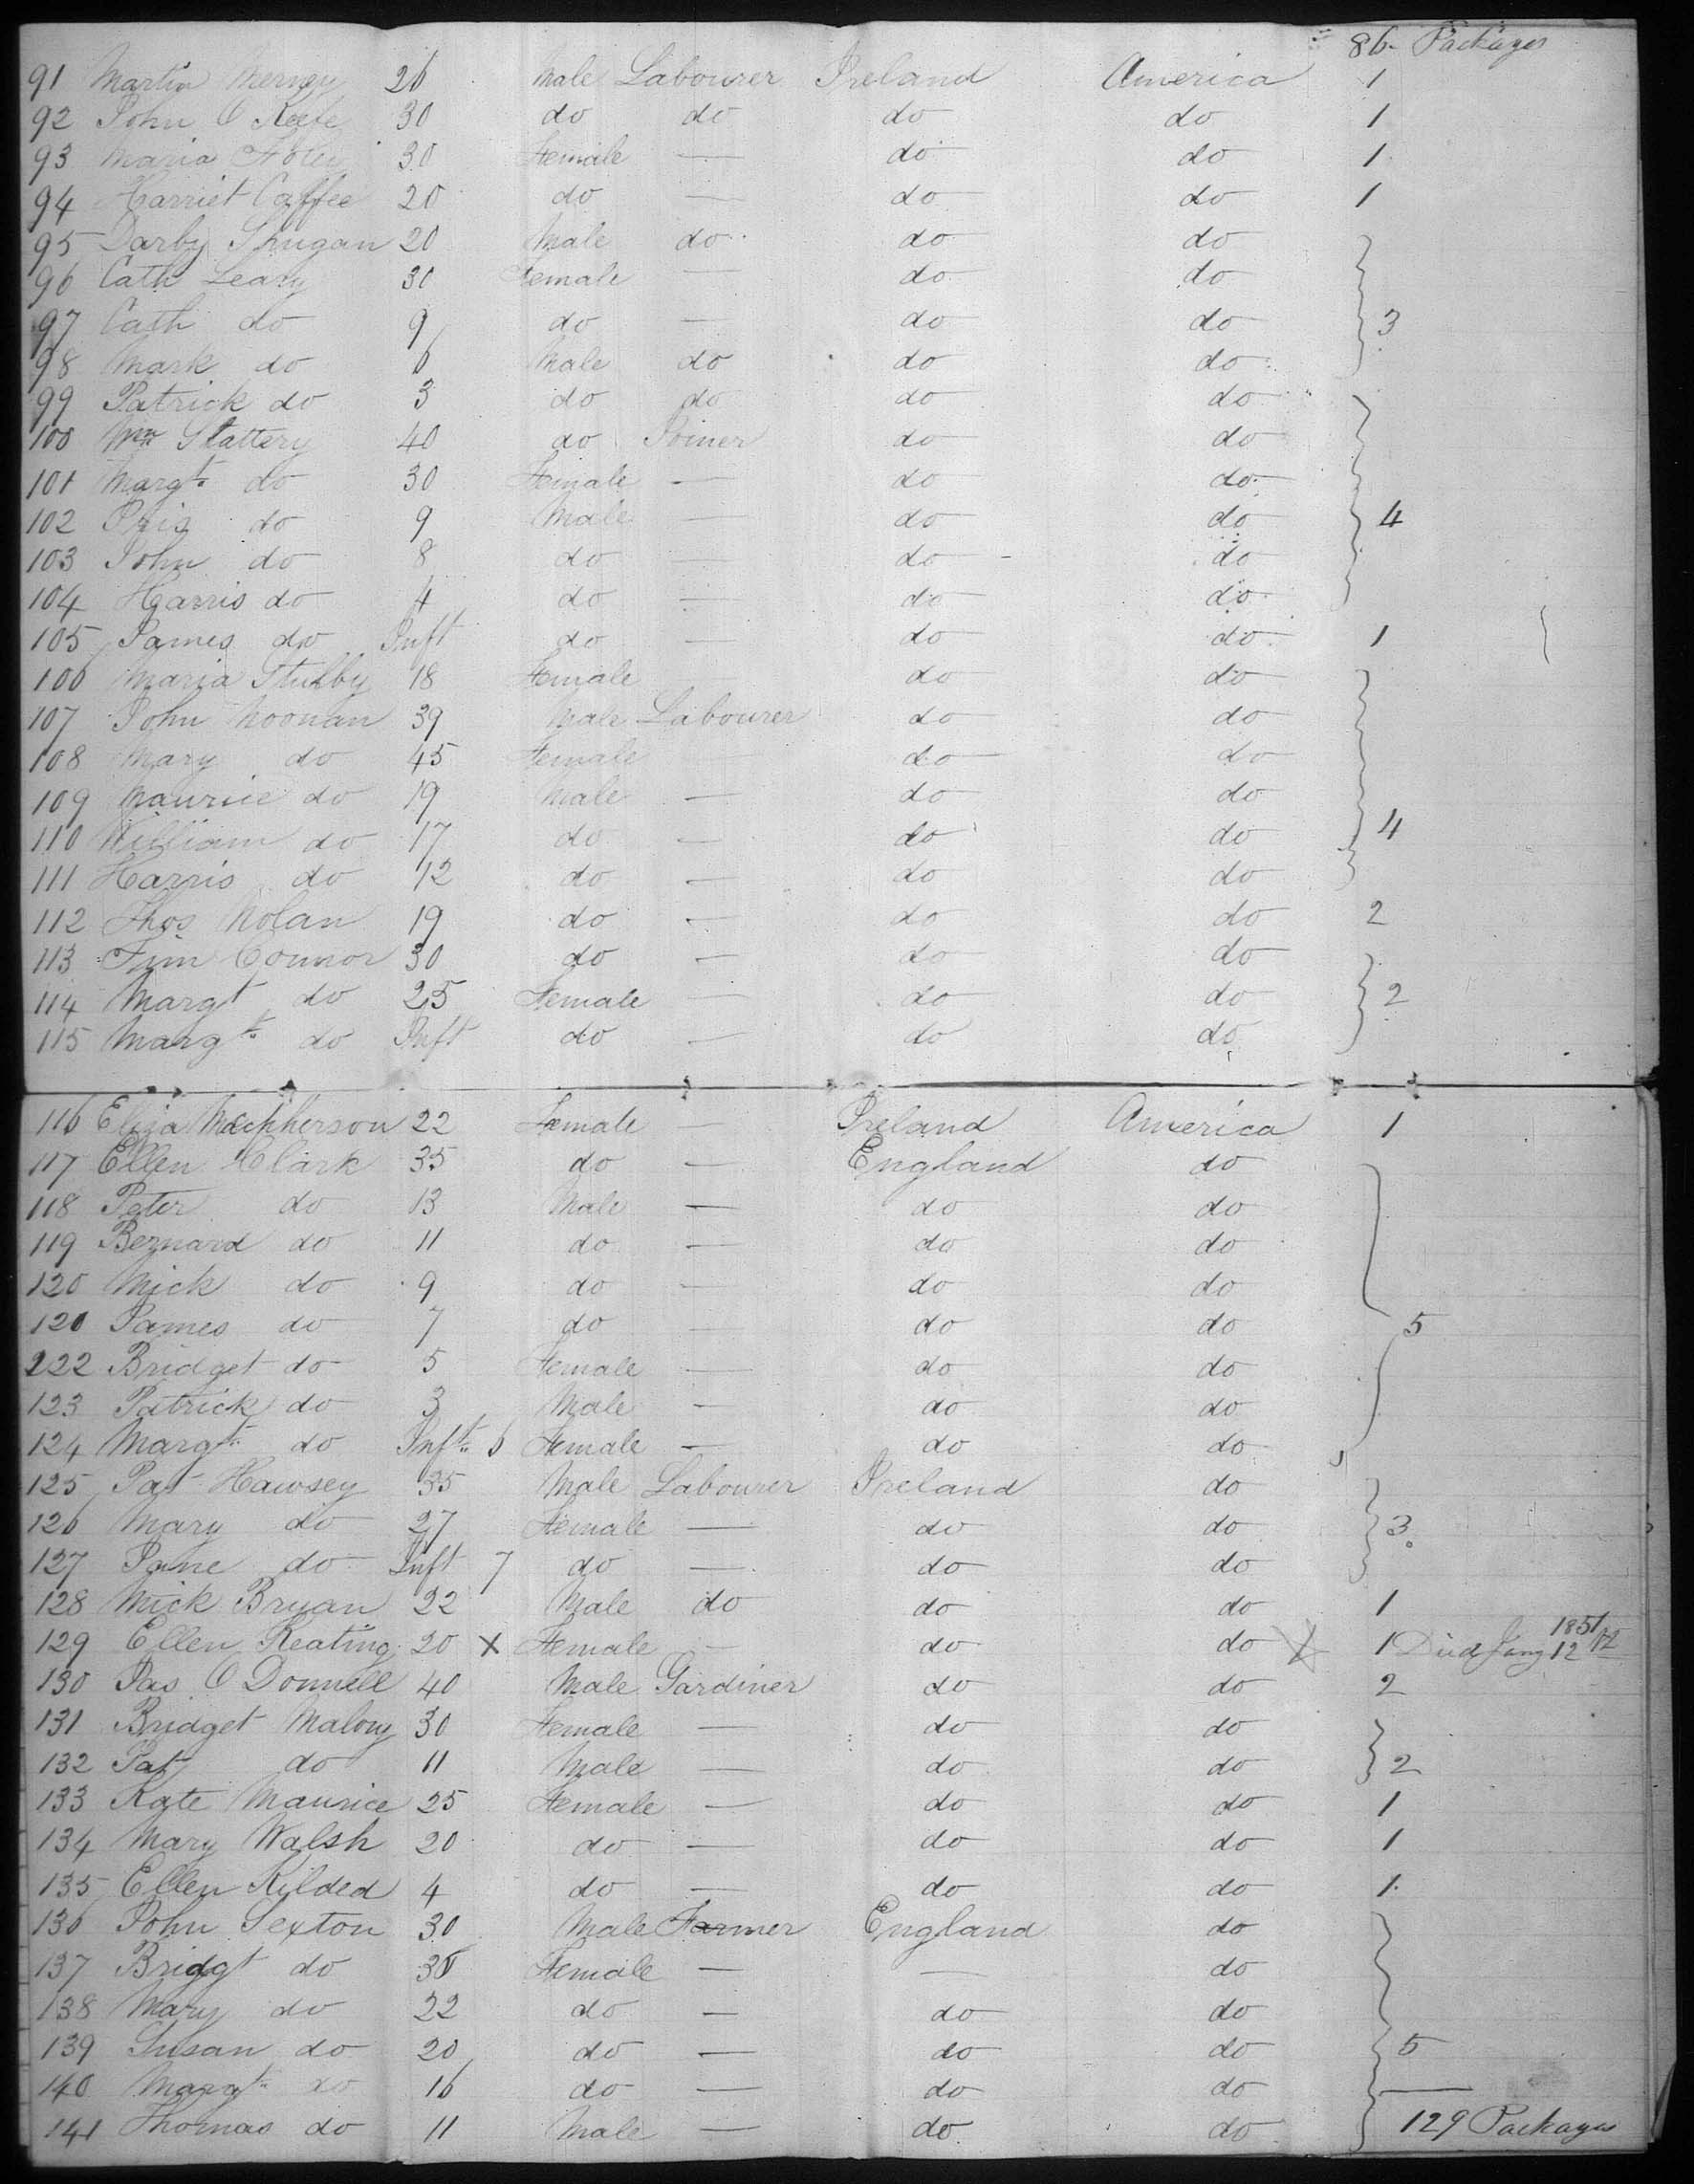 86 Packages
91 Martin 26 Male Labourer Ireland America 1
92 John O Keefe 30 do do do do 1
93 Maria 30 Female — do do 1
94 Harriet Caffee 20 do — do do 1
95 Darby Shugan 20 Male do do do
96 Cath Leary 30 Female — do do
97 Cath do 9 do — do do 3
98 Mark do 6 Male do do do
99 Patrick do 3 do do do do
100 Wm Slattery 40 do Joiner do do
101 Margt do 30 Female — do do
102 do 9 Male — do do 4
103 John do 8 do — do do
104 Harris do 4 do — do do
105 James do Inft do — do do 1
106 Maria 18 Female do do
107 John Noonan 39 Male Labourer do do
108 Mary do 45 Female do do
109 Maurice do 19 Male — do do
110 William do 17 do — do do 4
111 Harris do 12 do — do do
112 Thos Nolan 19 do — do do 2
113 Tim Connor 30 do — do do
114 Margt do 25 Female — do do 2
115 Margt do Inft do — do do
116 Eliza Macpherson 22 Female — Ireland America 1
117 Ellen Clark 35 do — England do
118 Peter do 13 Male — do do
119 Bernard do 11 do — do do
120 Mick do 9 do — do do
120 James do 7 do — do do 5
222 Bridget do 5 Female — do do
123 Patrick do 3 Male — do do
124 Margt do Inft 6 Female — do do
125 Pat Hawsey 35 Male Labourer Ireland do
126 Mary do 27 Female — do do 3
127 Jane do Inft 7 do — do do
128 Mick Bryan 22 Male do do do 1
129 Ellen Keating 20 X Female — do do X 1 Died Jany 12th 1851
130 Jas O Donnell 40 Male Gardiner do do 2
131 Bridget Malony 30 Female — do do
132 Pat do 11 Male — do do 2
133 Kate Maurice 25 Female — do do 1
134 Mary Walsh 20 do — do do 1
135 Ellen Kilded 4 do — do do 1
136 John Sexton 30 Male Farmer England do
137 Bridgt do 30 Female — — do
138 Mary do 22 do — do do
139 Susan do 20 do — do do 5
140 Margt do 16 do — do do
141 Thomas do 11 Male — do do
129 Packages